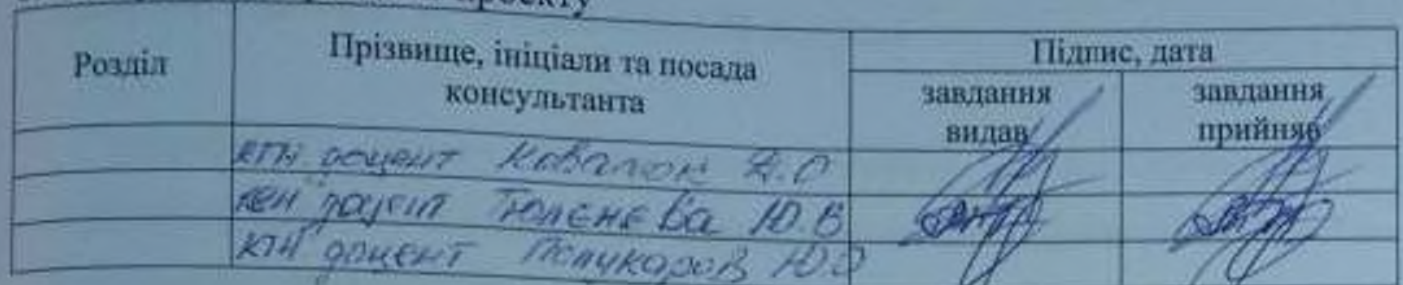 проекту
Розділ Прізвище, ініціали та посада консультанта Підпис, дата
завдання видав завдання прийняв
ктн доцент Ковалюк Д.О
кен доцент Тюленєва Ю.В
ктн доцент Полукаров Ю.О